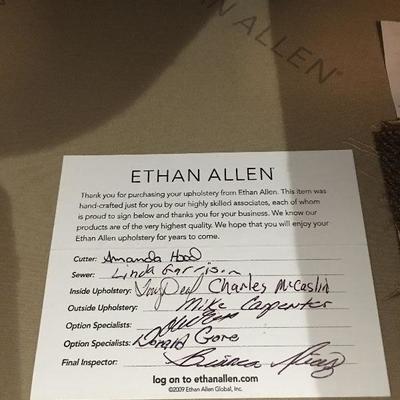 AN ALLEN
ETHAN ALLEN
Thank you for purchasing your upholstery from Ethan Allen. This item was
hand-crafted just for you by our highly skilled associates, each of whom
is proud to sign below and thanks you for your business. We know our
products are of the very highest quality. We hope that you will enjoy your
Ethan Allen upholstery for years to come.
Cutter: Amanda Hood
Sewer: Linda Garrison
Inside Upholstery: Tony Deal Charles McCaslin
Outside Upholstery: Mike Carpenter
Option Specialists:
Option Specialists: Donald Gore
Final Inspector: Bianca
log on to ethanallen.com
©2009 Ethan Allen Global, Inc.